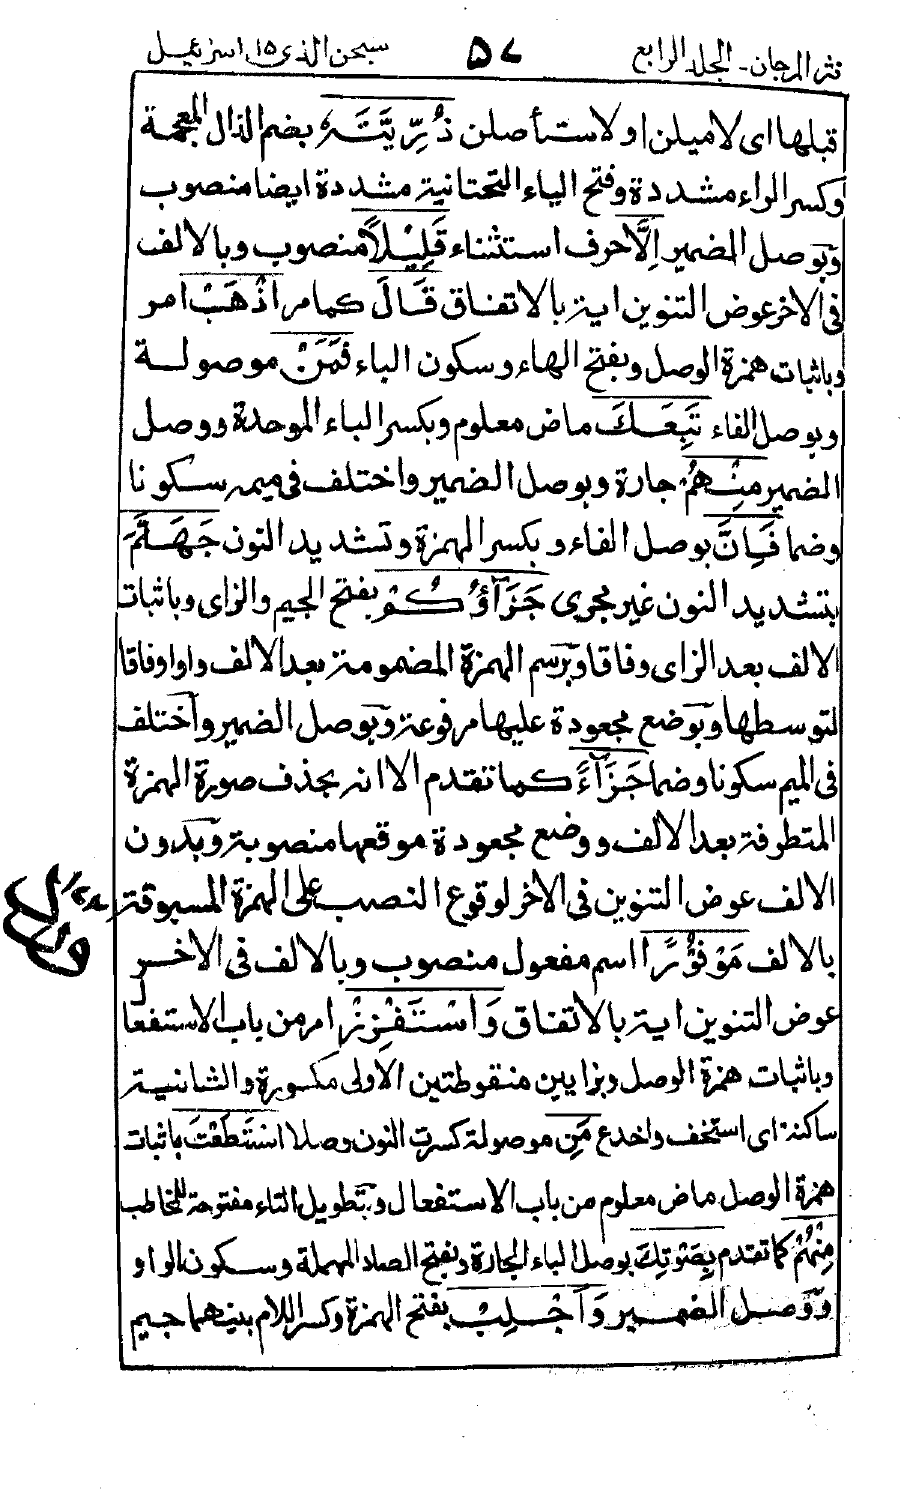 نثر المرجان - الجلد الرابع ٥٧ سبحن الذى ١٥ اسرئيل
قبلها اى لاميلن او لاستأصلن ذُرِّيَّتَهٗ بضم الذال المعجمة
وكسر الراء مشددة وفتح الياء التحتانية مشددة ايضا منصوب
وبوصل الضمير اِلَّا حرف استثناء قَلِيْلًا منصوب وبالالف
فى الاخر عوض التنوين اية بالاتفاق قَالَ كما مر اذْهَبْ امر
وباثبات همزة الوصل وبفتح الهاء وسكون الباء فَمَنْ موصولة
وبوصل الفاء تَبِعَكَ ماض معلوم وبكسر الباء الموحدة ووصل
الضمير مِنْهُمْ جارة وبوصل الضمير واختلف فى ميمه سكونا
وضما فَاِنَّ بوصل الفاء وبكسر الهمزة وتشديد النون جَهَنَّمَ
بتشديد النون غير مجرى جَزَآؤُكُمْ بفتح الجيم والزاى وباثبات
الالف بعد الزاى وفاقا وبرسم الهمزة المضمومة بعد الالف واوا وفاقا
لتوسطها وبوضع مجعودة عليها مرفوعة وبوصل الضمير واختلف
فى الميم سكونا وضما جَزَآءً كما تقدم الا انه بحذف صورة الهمزة
المتطرفة بعد الالف ووضع مجعودة موقعها منصوبة وبدون
الالف عوض التنوين فى الاخر لوقوع النصب على الهمزة المسبوقة
بالالف مَوْفُوْرًا اسم مفعول منصوب وبالالف فى الاخر
عوض التنوين اية بالاتفاق وَاسْتَفْزِزْ امر من باب الاستفعال
وباثبات همزة الوصل وبزايين منقوطتين الاولى مكسورة والثانية
ساكنة اى استخف واخدع مَنِ موصولة كسرت النون وصلا اسْتَطَعْتَ باثبات
همزة الوصل ماض معلوم من باب الاستفعال وبتطويل التاء مفتوحة للخاطب
مِنْهُمْ كما تقدم بِصَوْتِكَ بوصل الباء الجارة وبفتح الصاد المهملة وسكون الواو
ووصل الضمير وَاَجْلِبْ بفتح الهمزة وكسر اللام بينهما جيم